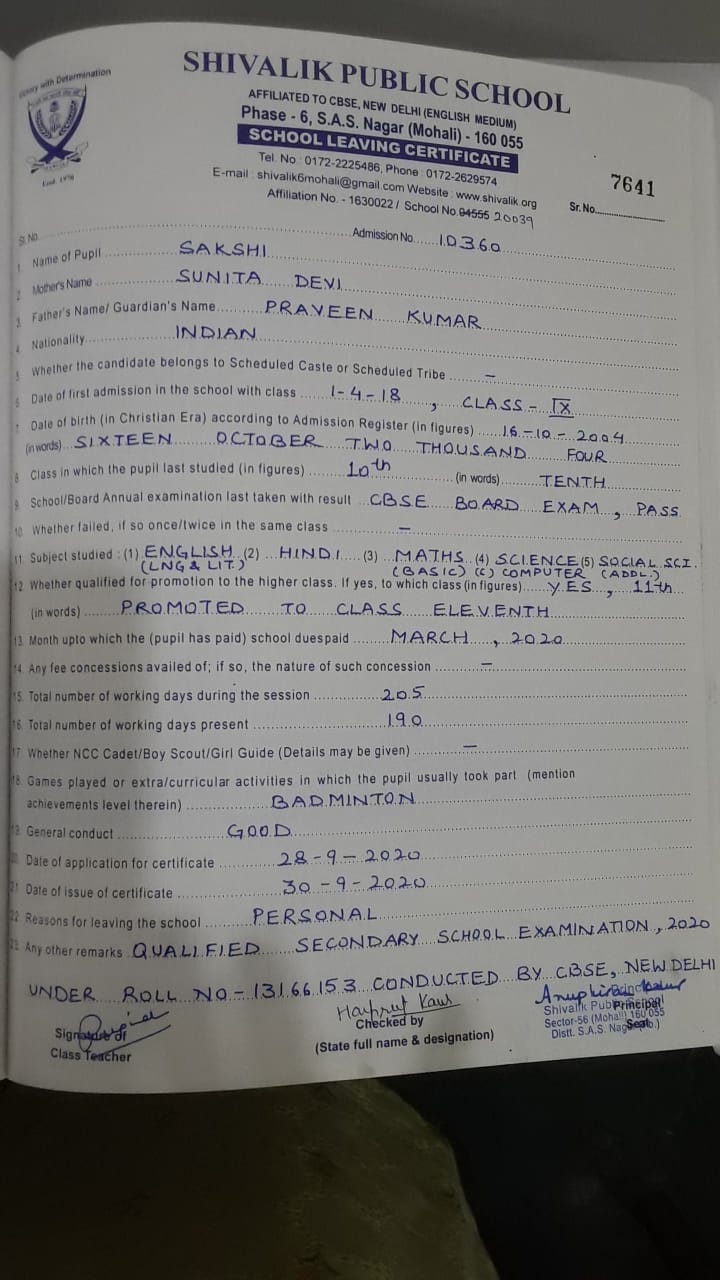 Victory with Determination
Estd. 1976
SHIVALIK PUBLIC SCHOOL
AFFILIATED TO CBSE, NEW DELHI (ENGLISH MEDIUM)
Phase - 6, S.A.S. Nagar (Mohali) - 160 055
SCHOOL LEAVING CERTIFICATE
Tel. No : 0172-2225486, Phone : 0172-2629574
E-mail : shivalik6mohali@gmail.com Website : www.shivalik.org
Affiliation No. - 1630022 / School No. 04555 20039
Sr. No. 7641
Sl. No. Admission No. 10360
1. Name of Pupil SAKSHI
2. Mother's Name SUNITA DEVI
3. Father's Name/ Guardian's Name PRAVEEN KUMAR
4. Nationality INDIAN
5. Whether the candidate belongs to Scheduled Caste or Scheduled Tribe –
6. Date of first admission in the school with class 1-4-18, CLASS - IX
7. Date of birth (in Christian Era) according to Admission Register (in figures) 16-10-2004
(in words) SIXTEEN OCTOBER TWO THOUSAND FOUR
8. Class in which the pupil last studied (in figures) 10th (in words) TENTH
9. School/Board Annual examination last taken with result CBSE BOARD EXAM, PASS
10. Whether failed, if so once/twice in the same class –
11. Subject studied : (1) ENGLISH (2) HINDI (3) MATHS (4) SCIENCE (5) SOCIAL SCI.
(LNG & LIT.) (BASIC) (6) COMPUTER (ADDL.)
12. Whether qualified for promotion to the higher class. If yes, to which class (in figures) YES, 11th
(in words) PROMOTED TO CLASS ELEVENTH
13. Month upto which the (pupil has paid) school duespaid MARCH, 2020
14. Any fee concessions availed of; if so, the nature of such concession –
15. Total number of working days during the session 205
16. Total number of working days present 190
17. Whether NCC Cadet/Boy Scout/Girl Guide (Details may be given) –
18. Games played or extra/curricular activities in which the pupil usually took part (mention
achievements level therein) BADMINTON
19. General conduct GOOD
20. Date of application for certificate 28-9-2020
21. Date of issue of certificate 30-9-2020
22. Reasons for leaving the school PERSONAL
23. Any other remarks QUALIFIED SECONDARY SCHOOL EXAMINATION, 2020
UNDER ROLL NO - 13166153 CONDUCTED BY CBSE, NEW DELHI
Harpreet Kaur
Signature of
Class Teacher
Checked by
(State full name & designation)
Principal
Shivalik Public School
Principal
Sector-56 (Mohali) 160 055
Seal
Distt. S.A.S. Nagar (Pb.)